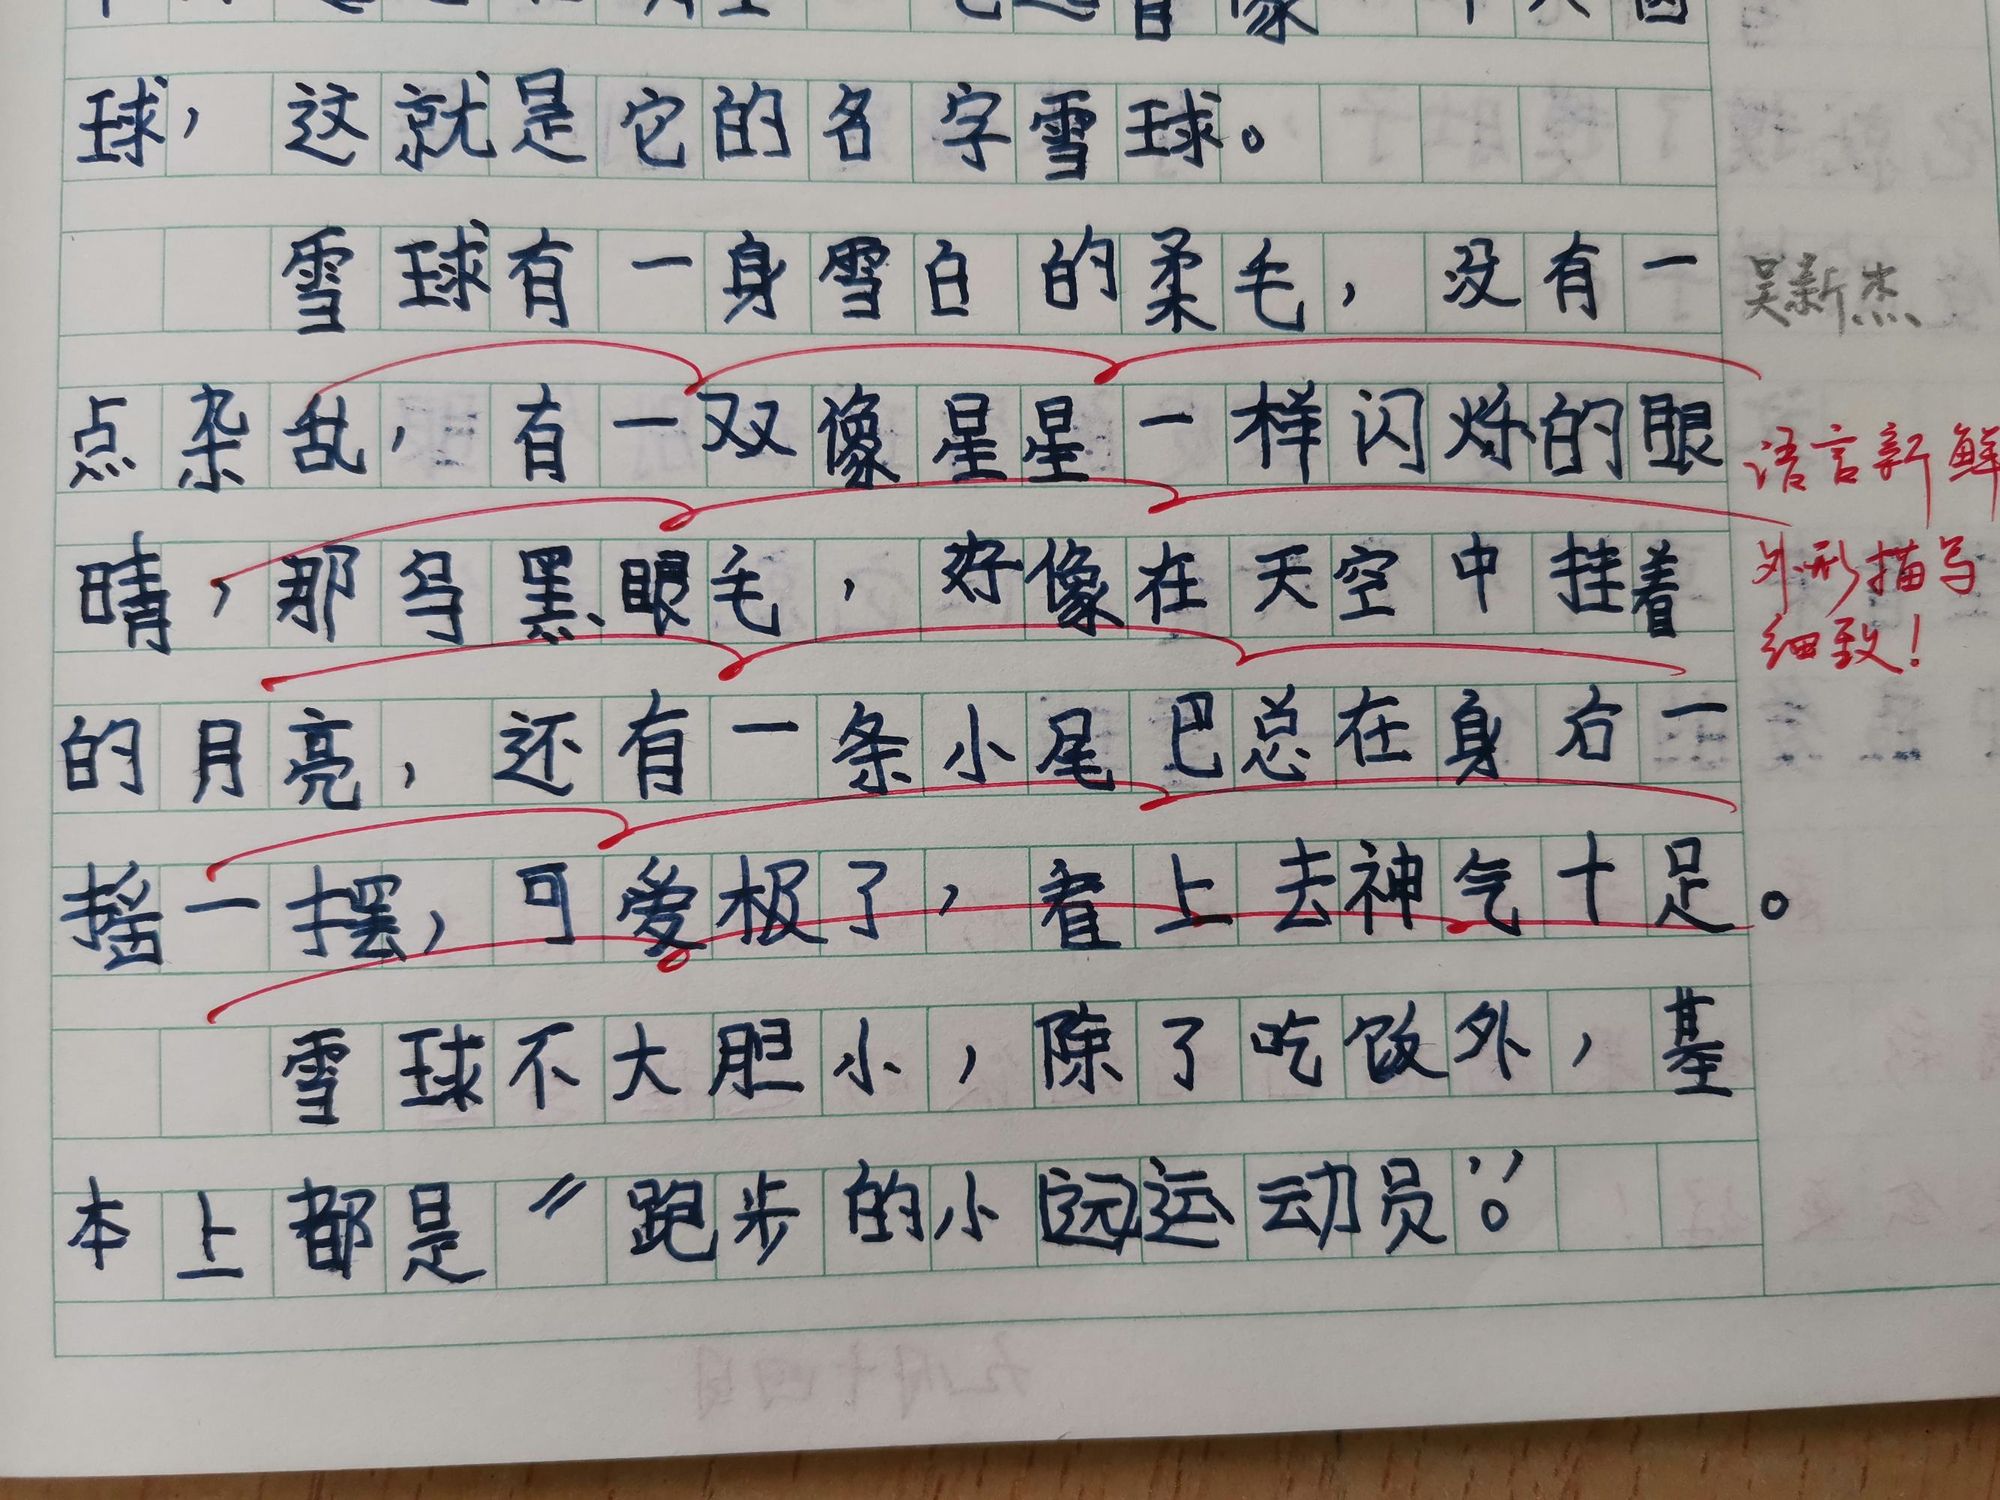 球，这就是它的名字雪球。
雪球有一身雪白的柔毛，没有一
吴新杰
点杂乱，有一双像星星一样闪烁的眼
语言新鲜
晴，那乌黑眼毛，好像在天空中挂着
外形描写
细致！
的月亮，还有一条小尾巴总在身右一
摇一摆，可爱极了，看上去神气十足。
雪球不大胆小，除了吃饭外，基
本上都是“跑步的小运动员”。